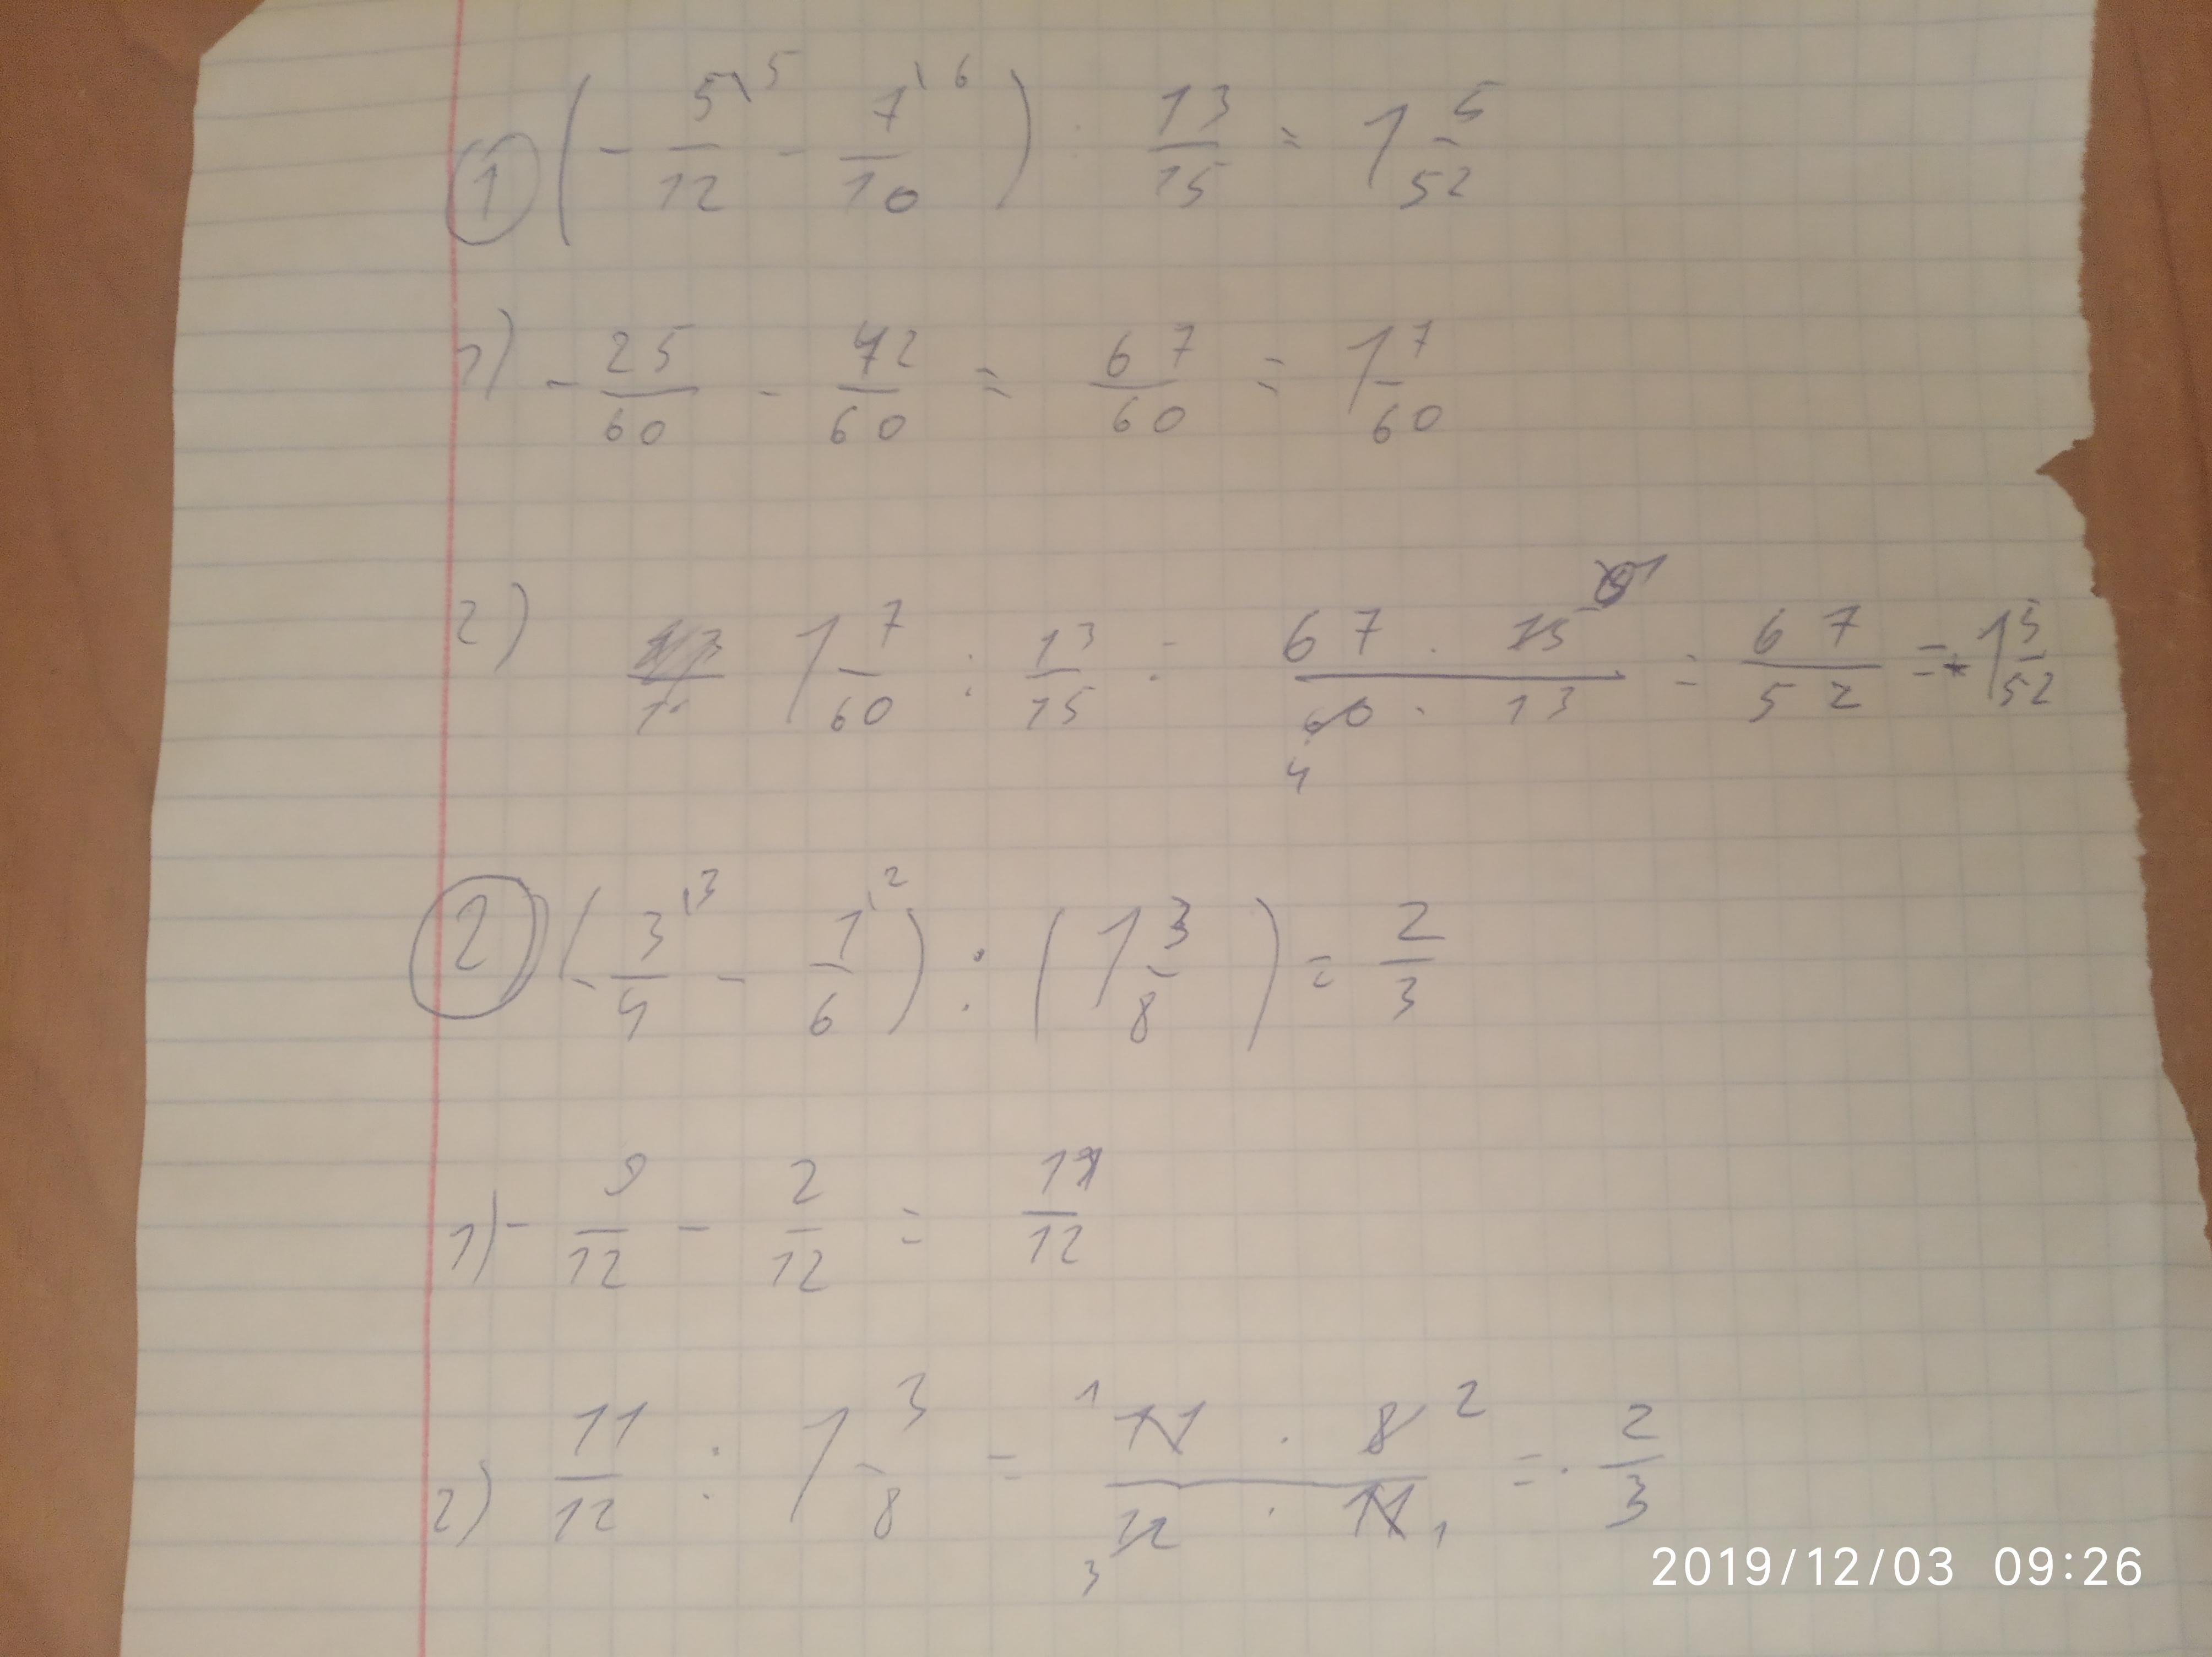 ① (- 5\5/12 - 7\6/10) : 13/15 = 1 5/52
1) - 25/60 - 42/60 = 67/60 = 1 7/60
2) 1 7/60 : 13/15 = 67 · 15 1/60 4 · 13 = 67/52 = 1 5/52
② (- 3\3/4 - 1\2/6) : (1 3/8) = 2/3
1) - 9/12 - 2/12 = 11/12
2) 11/12 : 1 3/8 = 1 11 · 8 2/3 12 · 11 1 = 2/3
2019/12/03 09:26